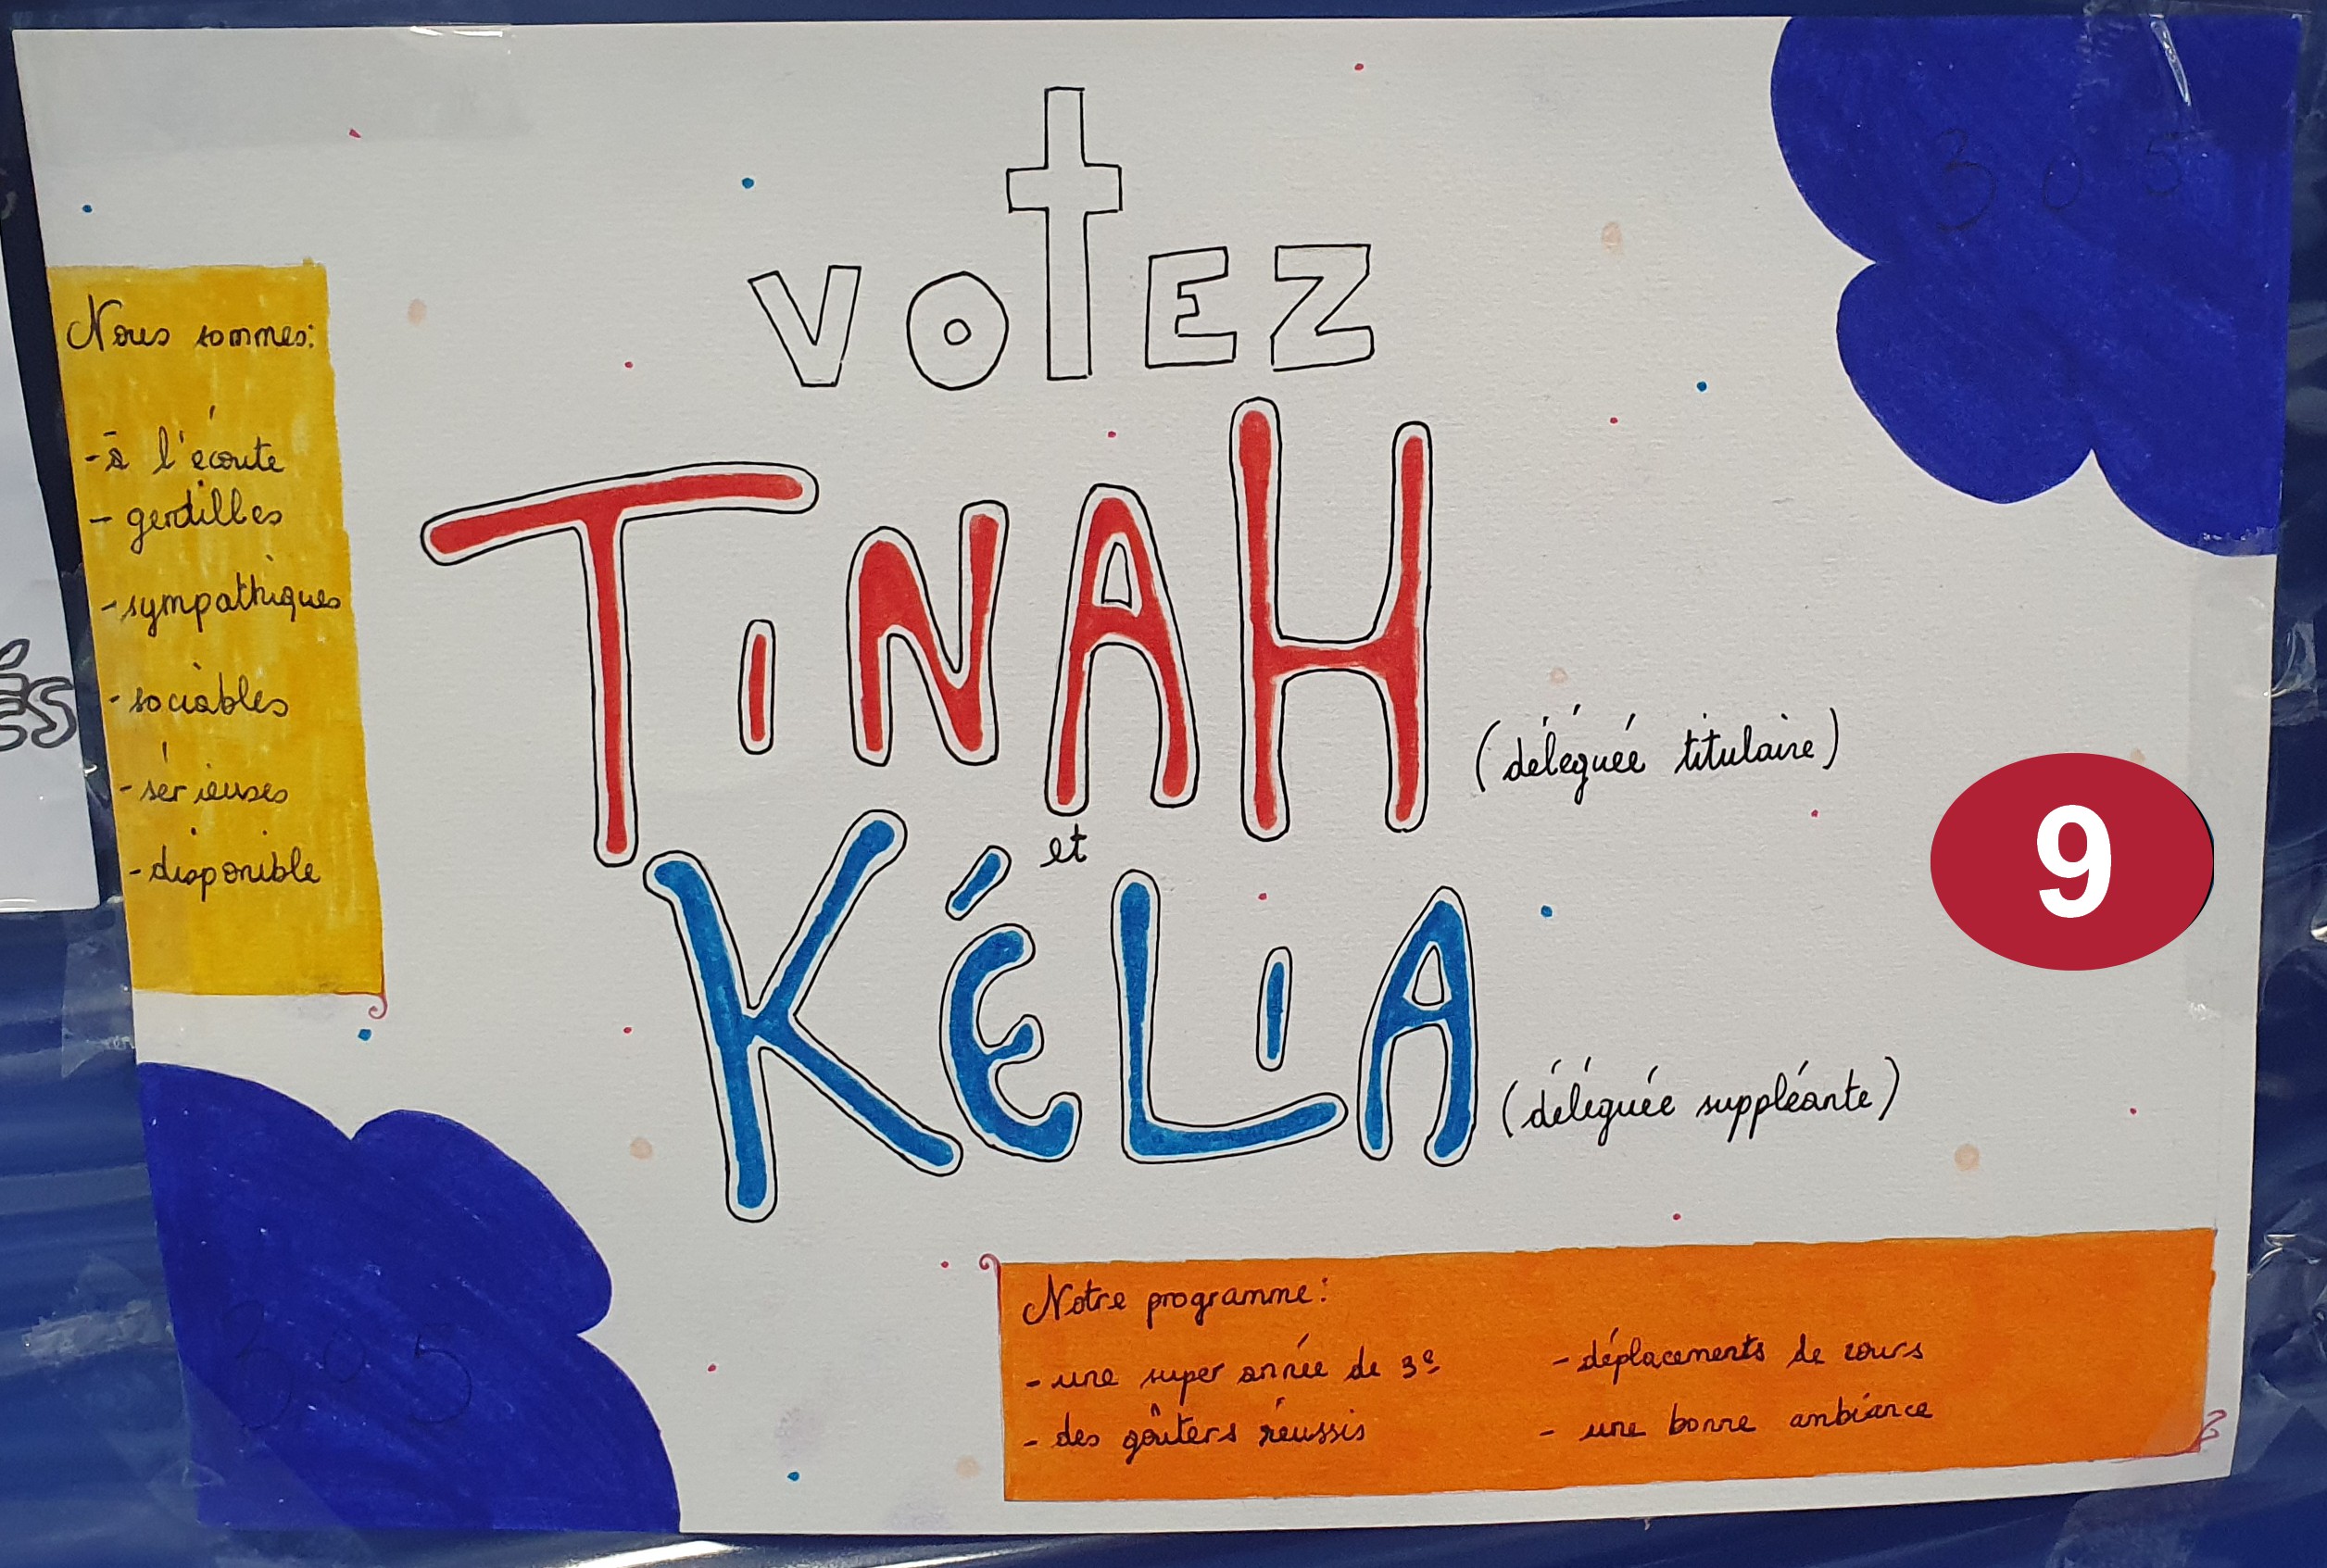 VOTEZ
TINAH
(déléguée titulaire)
et
KÉLIA
(déléguée suppléante)
Nous sommes:
- à l'écoute
- gentilles
- sympathiques
- sociables
- sérieuses
- disponible
Notre programme:
- une super année de 3e
- des goûters réussis
- déplacements de cours
- une bonne ambiance
305
305
9
ÉS